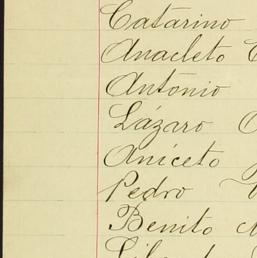 Catarino
Anacleto
Antonio
Lázaro
Aniceto
Pedro
Benito